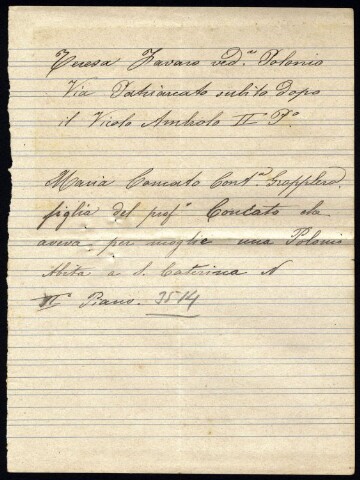 Teresa Zavaro ved.ª Polonio
Via Patriarcato subito dopo
il Vicolo II P.º
Maria Concato Cont.ª Gropplero.
figlia del prof.r Concato che
aveva per moglie una Polonio
Abita a S. Caterina N
II.º Piano. 3514